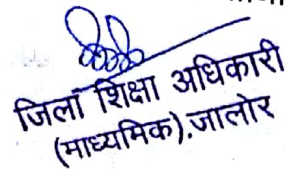 जिला शिक्षा अधिकारी
(माध्यमिक).जालोर